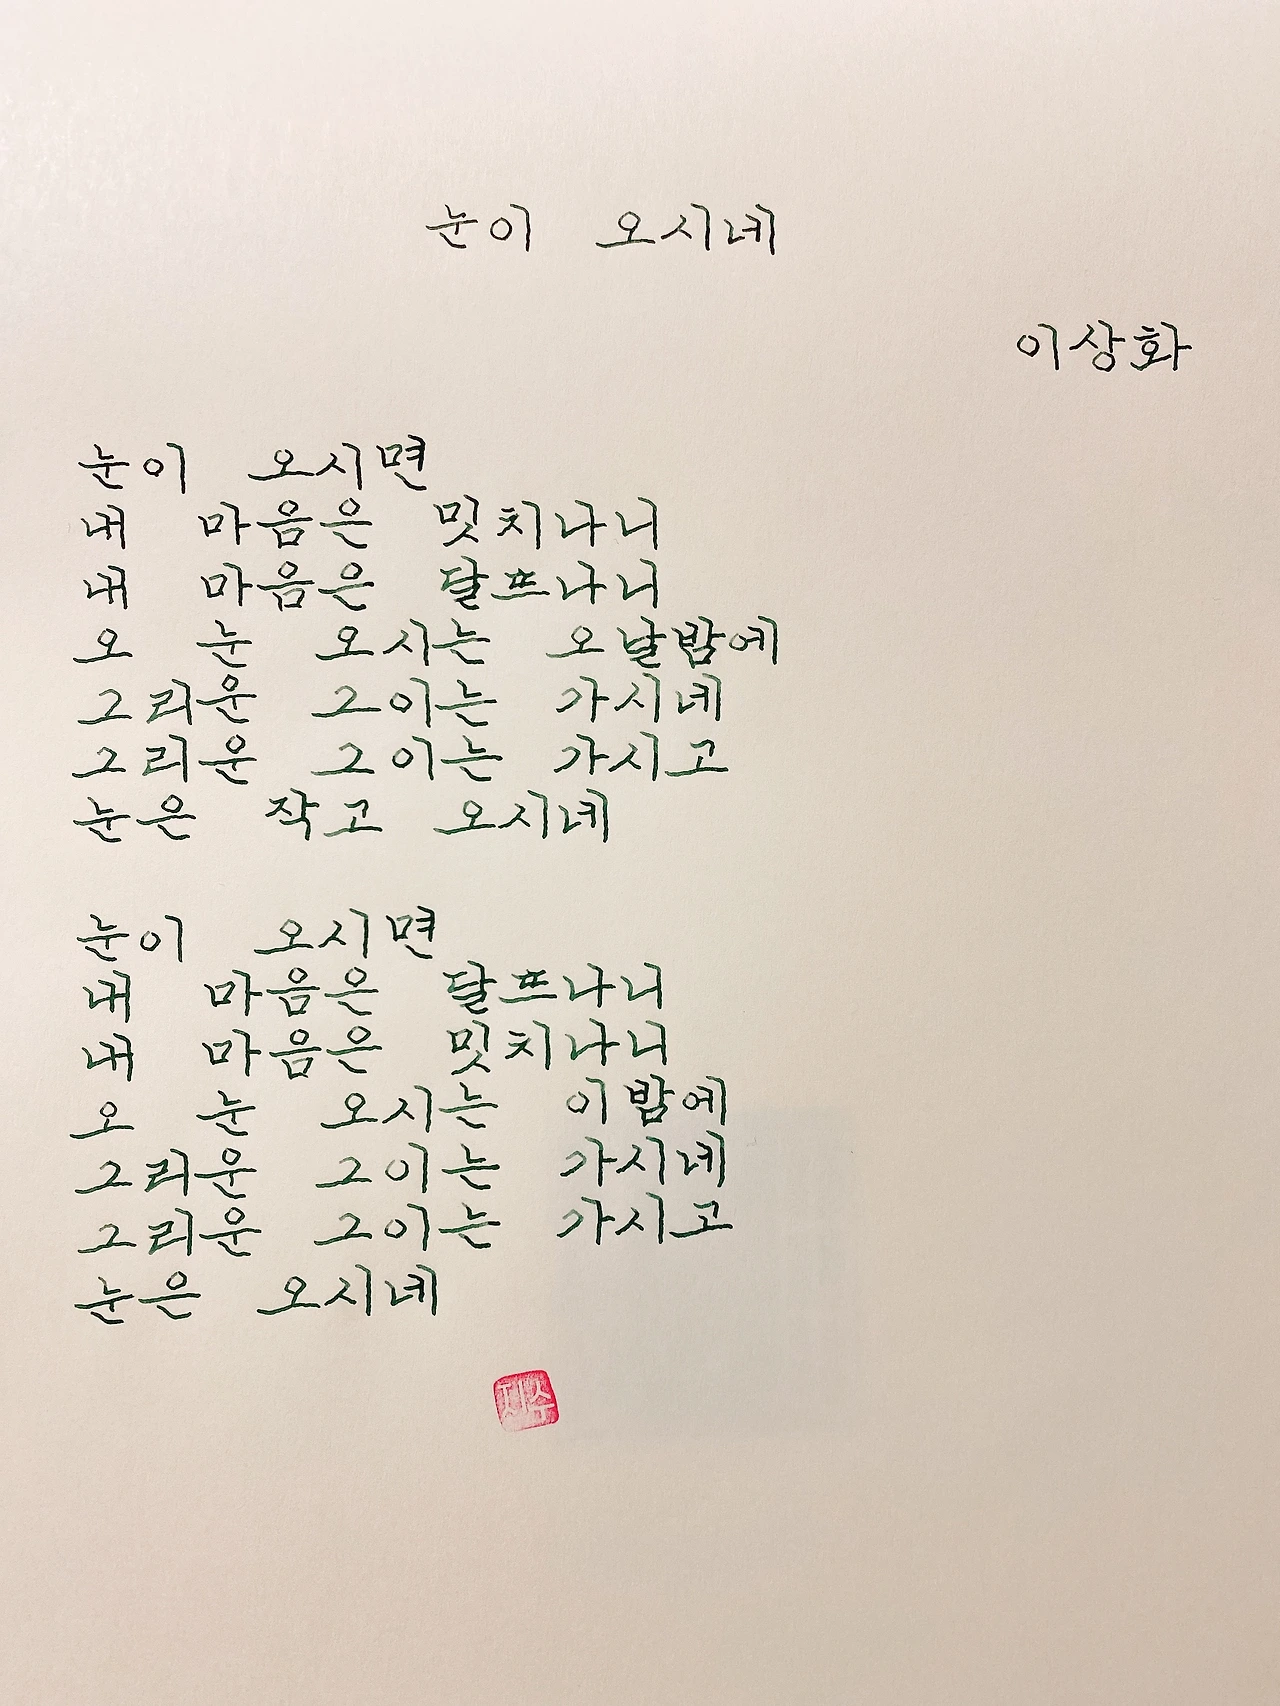 눈이 오시네
이상화
눈이 오시면
내 마음은 밋치나니
내 마음은 달뜨나니
오 눈 오시는 오날밤에
그리운 그이는 가시네
그리운 그이는 가시고
눈은 작고 오시네
눈이 오시면
내 마음은 달뜨나니
내 마음은 밋치나니
오 눈 오시는 이밤에
그리운 그이는 가시네
그리운 그이는 가시고
눈은 오시네
지수